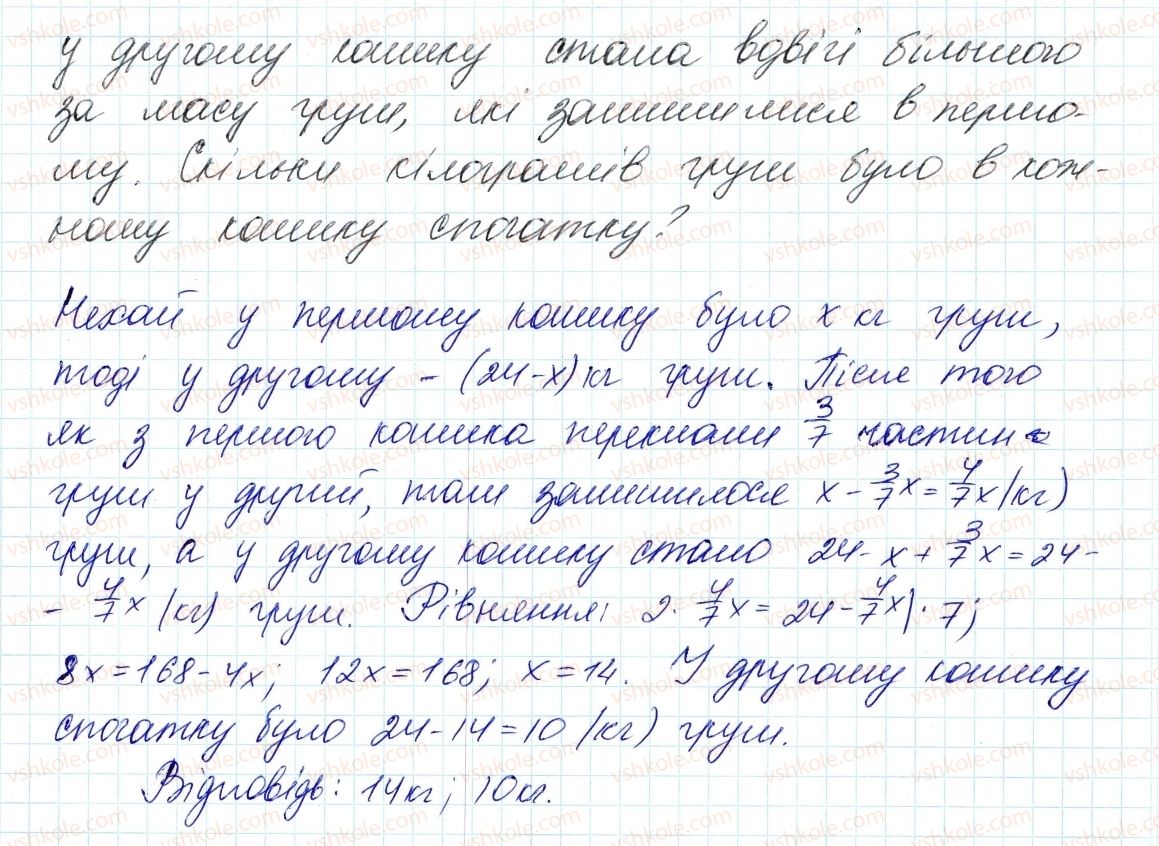 у другому кошику стала вдвічі більшою
за масу груш, які залишилися в першо-
му. Скільки кілограмів груш було в кож-
ному кошику спочатку?
Нехай у першому кошику було x кг груш,
тоді у другому – (24-x) кг груш. Після того
як з першого кошика переклали 3/7 частин
груш у другий, там залишилося x - 3/7x = 4/7x (кг)
груш, а у другому кошику стало 24 - x + 3/7x = 24 -
- 4/7x (кг) груш. Рівняння: 2 · 4/7x = 24 - 4/7x | · 7;
8x = 168 - 4x; 12x = 168; x = 14. У другому кошику
спочатку було 24 - 14 = 10 (кг) груш.
Відповідь: 14 кг; 10 кг.